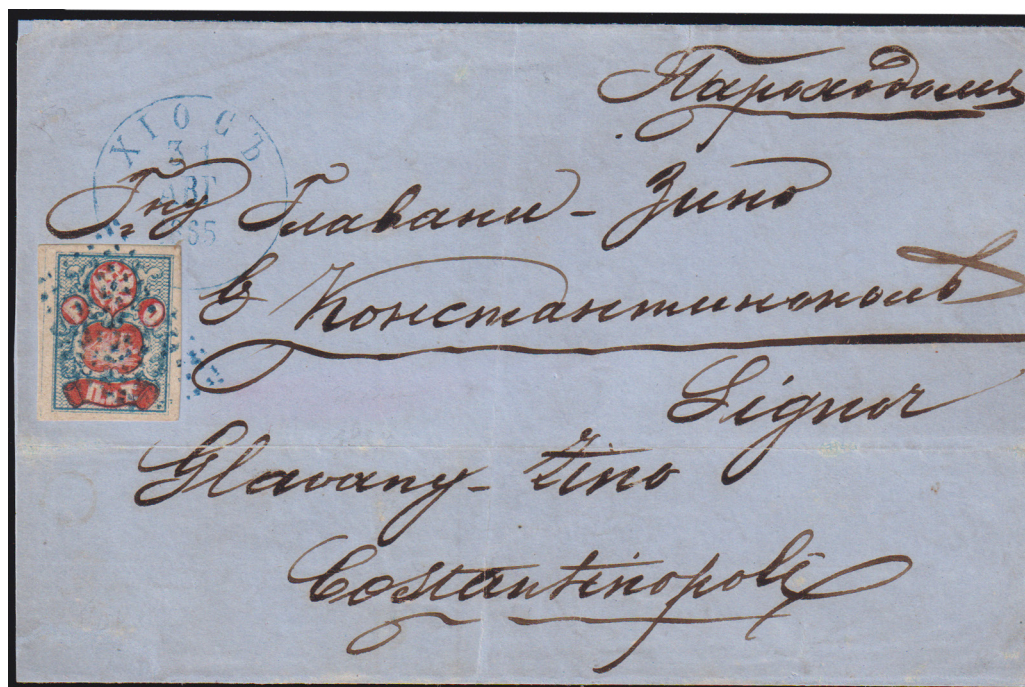 Пароходомъ
ХІОСЪ
31
АВГ
1865
Гну Главани - Зино
в Константинополь
Signor
Glavany - Zino
Costantinopoli